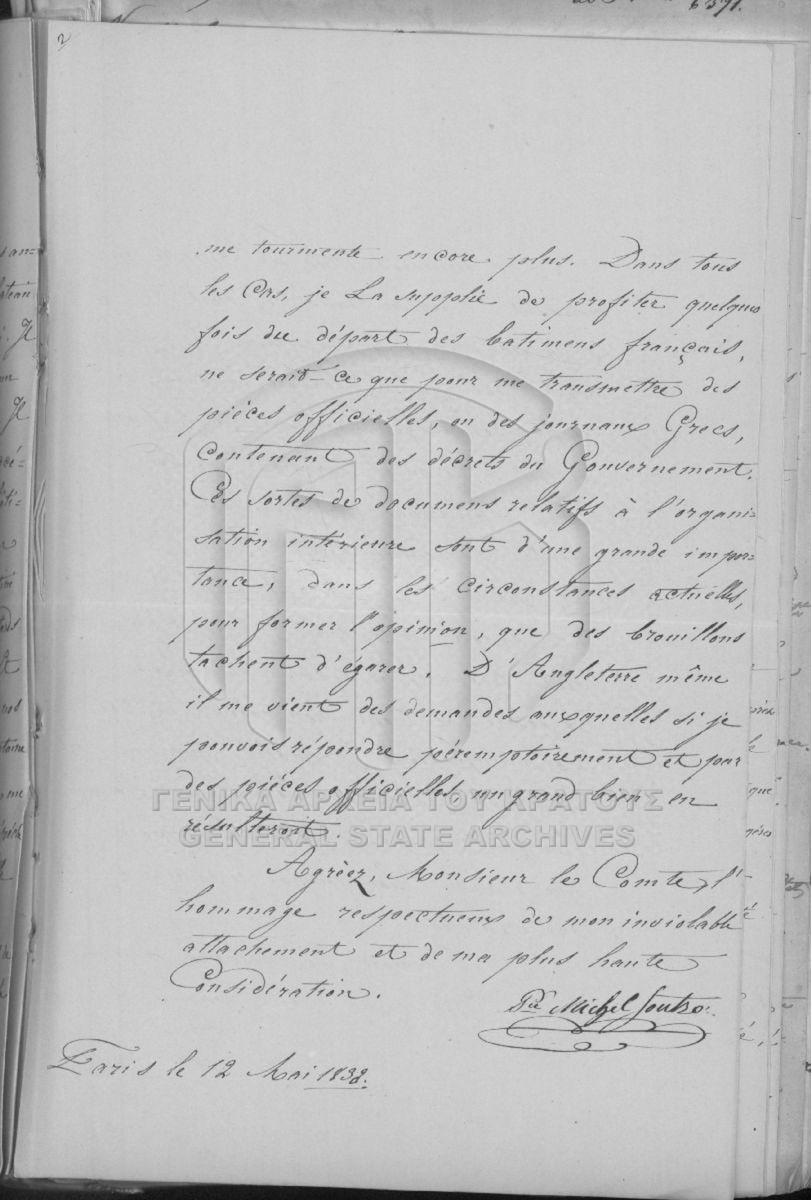 2
me tourmente encore plus. Dans tous
les Cas, je La supplie de profiter quelques
fois du départ des batimens français,
ne serait-ce que pour me transmettre des
pièces officielles, ou des journaux Grecs,
contenant des décrets du Gouvernement.
Ces sortes de documens relatifs à l'organi=
sation intérieure sont d'une grande impor=
tance, dans les circonstances actuelles,
pour former l'opinion, que des brouillons
tachent d'égarer. D'Angleterre même
il me vient des demandes auxquelles si je
pouvois répondre péremptoirement et par
des pièces officielles un grand bien en
résulteroit.
ΓΕΝΙΚΑ ΑΡΧΕΙΑ ΤΟΥ ΚΡΑΤΟΥΣ
GENERAL STATE ARCHIVES
Agréez, Monsieur le Comte, l'
hommage respectueux de mon inviolable
attachement et de ma plus haute
Considération.
Pce Michel Soutzo.
Paris le 12 Mai 1832.